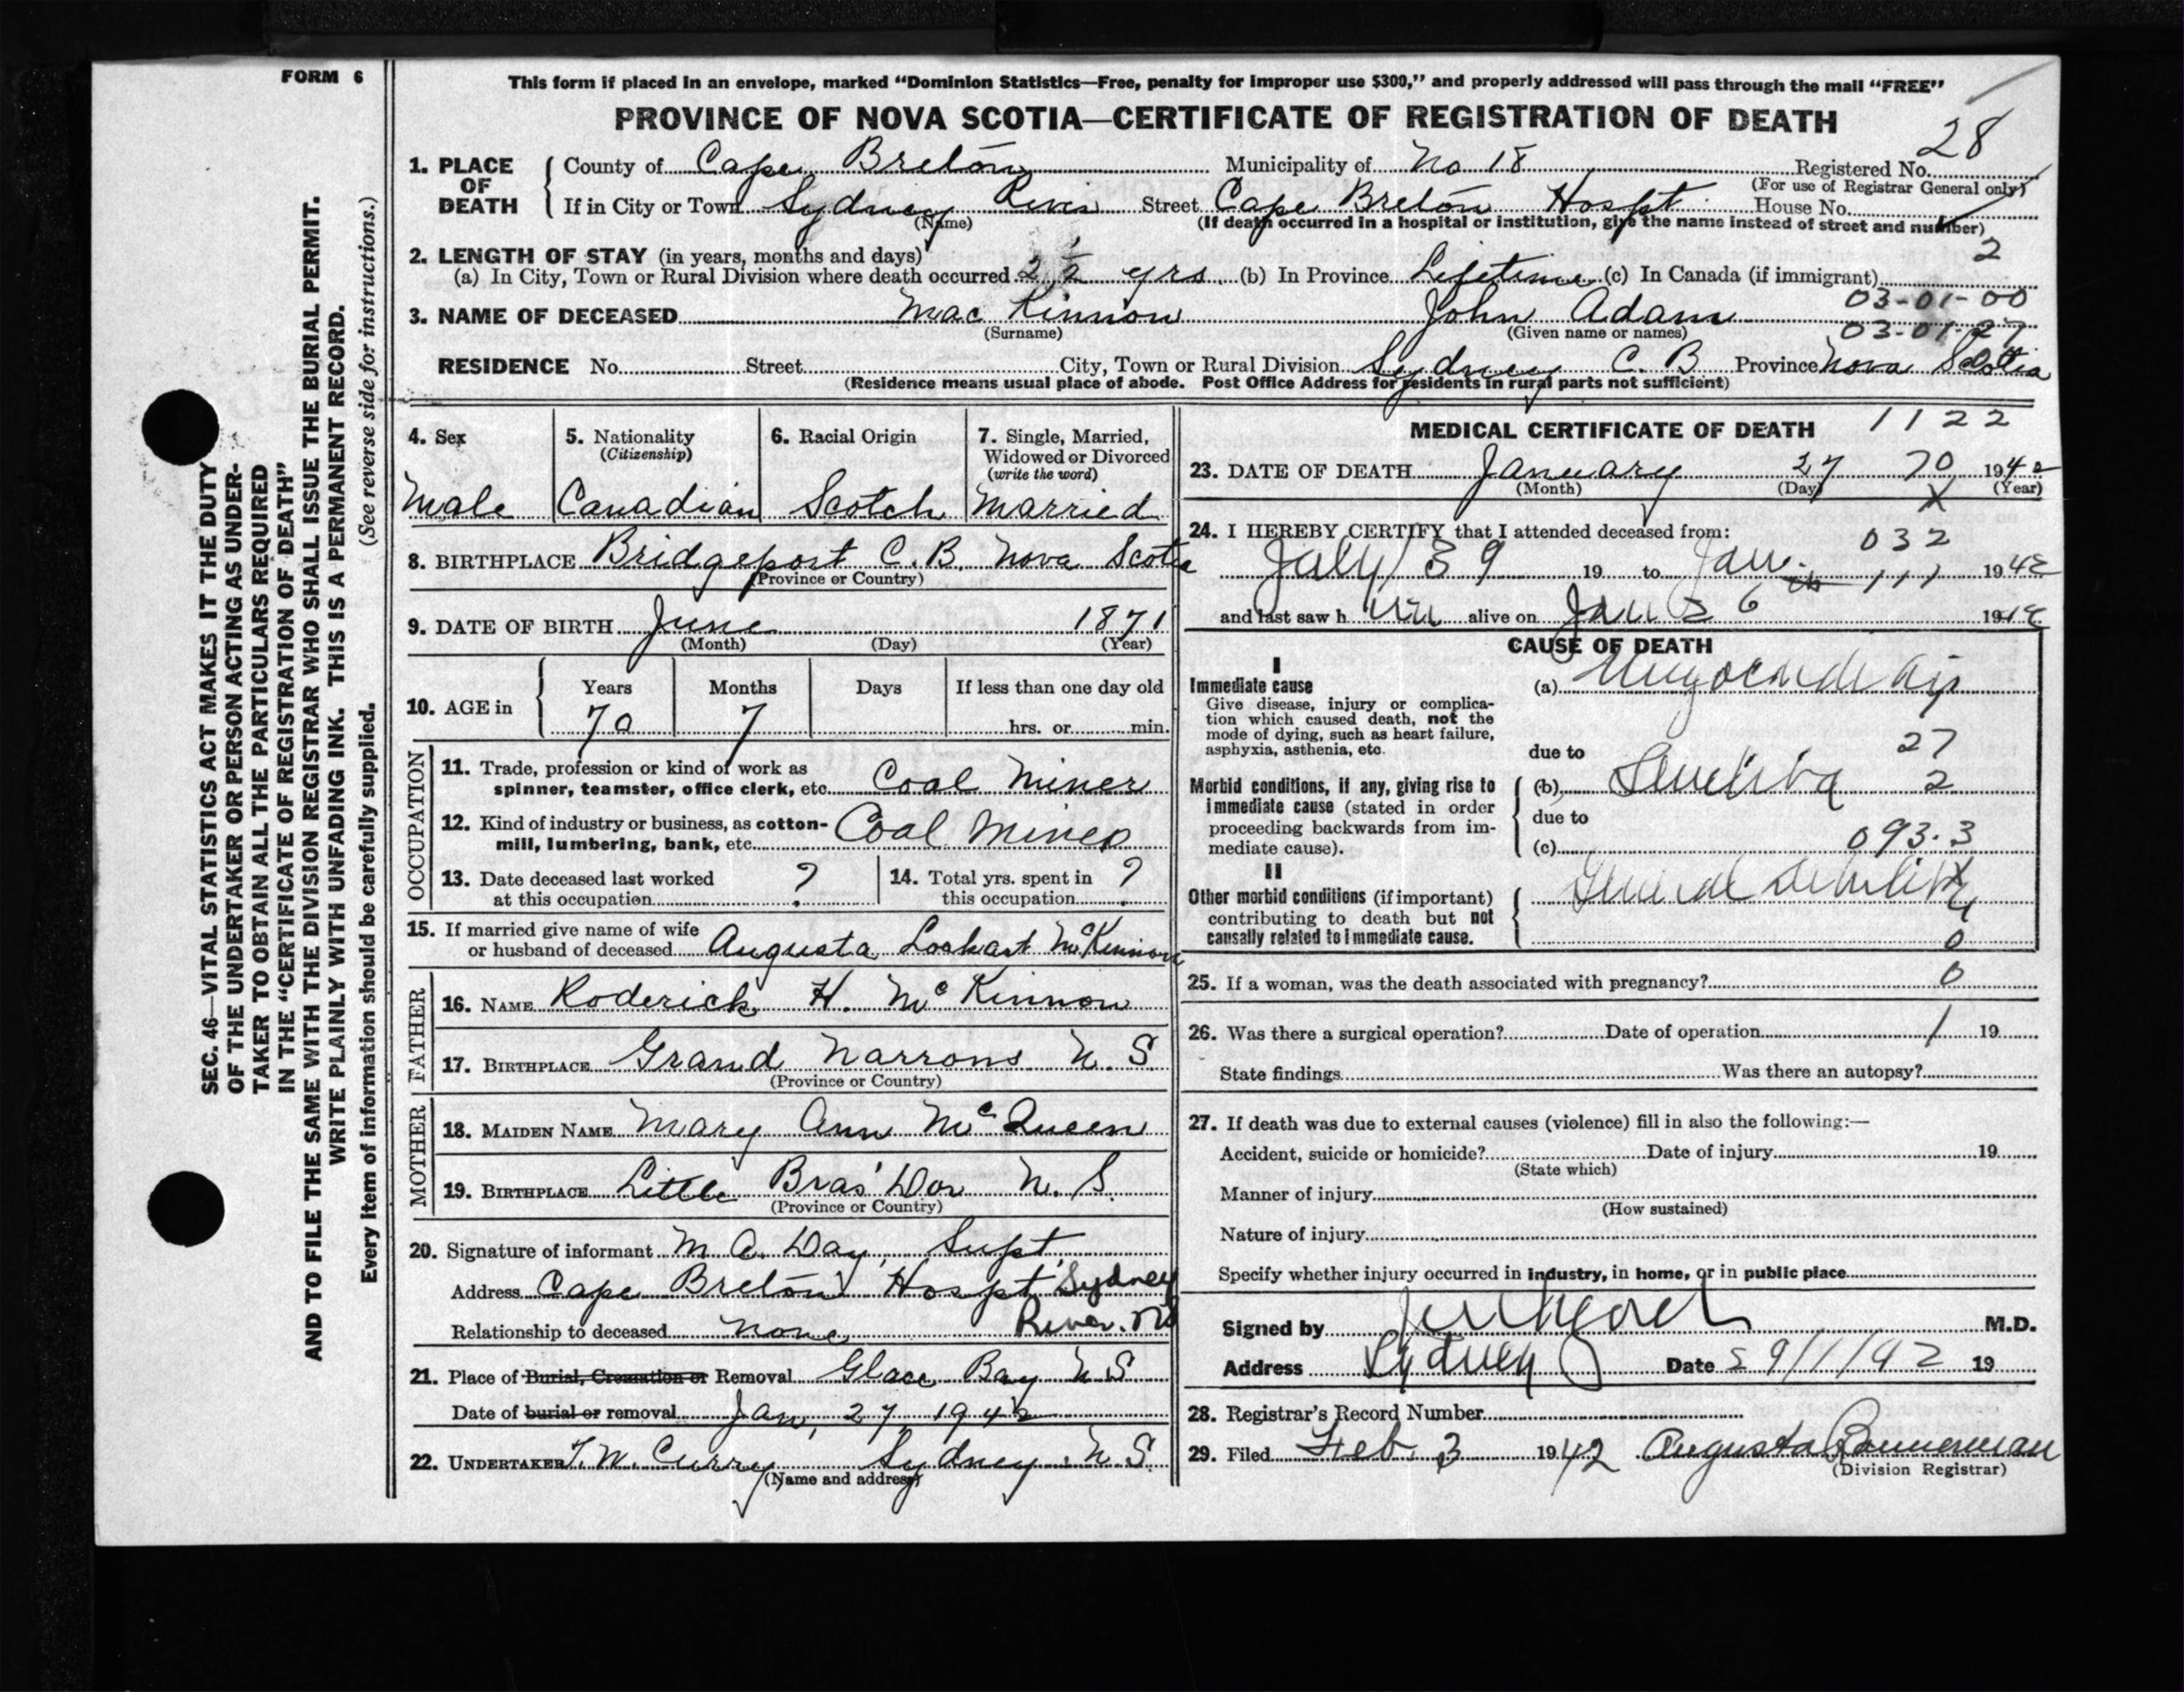 FORM 6
This form if placed in an envelope, marked “Dominion Statistics—Free, penalty for improper use $300,” and properly addressed will pass through the mail “FREE”
PROVINCE OF NOVA SCOTIA—CERTIFICATE OF REGISTRATION OF DEATH
28
1. PLACE OF DEATH
County of Cape Breton Municipality of No 18 Registered No.
(For use of Registrar General only)
If in City or Town Sydney River Street Cape Breton Hospt. House No.
(Name) (If death occurred in a hospital or institution, give the name instead of street and number)
2
2. LENGTH OF STAY (in years, months and days)
(a) In City, Town or Rural Division where death occurred 2½ yrs (b) In Province Lifetime (c) In Canada (if immigrant)
03-01-00
3. NAME OF DECEASED Mac Kinnon John Adam
(Surname) (Given name or names) 03-01-27
RESIDENCE No. Street City, Town or Rural Division Sydney C. B Province Nova Scotia
(Residence means usual place of abode. Post Office Address for residents in rural parts not sufficient)
4. Sex
Male
5. Nationality
(Citizenship)
Canadian
6. Racial Origin
Scotch
7. Single, Married,
Widowed or Divorced
(write the word)
Married
8. BIRTHPLACE Bridgeport C.B. Nova Scotia
(Province or Country)
9. DATE OF BIRTH June 1871
(Month) (Day) (Year)
10. AGE in
Years Months Days If less than one day old
70 7 hrs. or min.
OCCUPATION
11. Trade, profession or kind of work as
spinner, teamster, office clerk, etc. Coal Miner
12. Kind of industry or business, as cotton-
mill, lumbering, bank, etc. Coal Mines
13. Date deceased last worked
at this occupation ?
14. Total yrs. spent in
this occupation ?
15. If married give name of wife
or husband of deceased Augusta Loskart McKinnon
FATHER
16. NAME Roderick H. McKinnon
17. BIRTHPLACE Grand Narrons N. S.
(Province or Country)
MOTHER
18. MAIDEN NAME Mary Ann McQueen
19. BIRTHPLACE Little Bras'Dor N. S.
(Province or Country)
20. Signature of informant M. A. Day, Supt
Address Cape Breton Hospt Sydney
Relationship to deceased none River. NS
21. Place of Burial, Cremation or Removal Glace Bay N S
Date of burial or removal Jan, 27, 1942
22. UNDERTAKER T. W. Curry Sydney N. S.
(Name and address)
MEDICAL CERTIFICATE OF DEATH 1122
23. DATE OF DEATH January 27 70 1942
(Month) (Day) (Year)
X
24. I HEREBY CERTIFY that I attended deceased from:
032
July 39 19 to Jan. 111 1942
and last saw h im alive on Jan 26 1942
CAUSE OF DEATH
I
Immediate cause
Give disease, injury or complica-
tion which caused death, not the
mode of dying, such as heart failure,
asphyxia, asthenia, etc.
(a)
due to 27
Morbid conditions, if any, giving rise to
immediate cause (stated in order
proceeding backwards from im-
mediate cause).
(b) 2
due to
(c) 093.3
II
Other morbid conditions (if important)
contributing to death but not
causally related to immediate cause.
General Debility
X
4
0
25. If a woman, was the death associated with pregnancy? 0
26. Was there a surgical operation? Date of operation 1 19
State findings Was there an autopsy?
27. If death was due to external causes (violence) fill in also the following:—
Accident, suicide or homicide? Date of injury 19
(State which)
Manner of injury
(How sustained)
Nature of injury
Specify whether injury occurred in industry, in home, or in public place
Signed by M.D.
Address Sydney Date 29/1/42 19
28. Registrar's Record Number
29. Filed Feb 3 1942 Augusta Bannerman
(Division Registrar)
SEC. 46—VITAL STATISTICS ACT MAKES IT THE DUTY
OF THE UNDERTAKER OR PERSON ACTING AS UNDER-
TAKER TO OBTAIN ALL THE PARTICULARS REQUIRED
IN THE “CERTIFICATE OF REGISTRATION OF DEATH”
AND TO FILE THE SAME WITH THE DIVISION REGISTRAR WHO SHALL ISSUE THE BURIAL PERMIT.
WRITE PLAINLY WITH UNFADING INK. THIS IS A PERMANENT RECORD.
Every item of information should be carefully supplied. (See reverse side for instructions.)